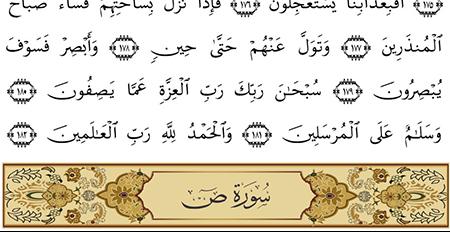 ﴿١٧٥﴾ أَفَبِعَذَابِنَا يَسْتَعْجِلُونَ ﴿١٧٦﴾ فَإِذَا نَزَلَ بِسَاحَتِهِمْ فَسَاءَ صَبَاحُ
ٱلْمُنذَرِينَ ﴿١٧٧﴾ وَتَوَلَّ عَنْهُمْ حَتَّىٰ حِينٍ ﴿١٧٨﴾ وَأَبْصِرْ فَسَوْفَ
يُبْصِرُونَ ﴿١٧٩﴾ سُبْحَـٰنَ رَبِّكَ رَبِّ ٱلْعِزَّةِ عَمَّا يَصِفُونَ ﴿١٨٠﴾
وَسَلَـٰمٌ عَلَى ٱلْمُرْسَلِينَ ﴿١٨١﴾ وَٱلْحَمْدُ لِلَّهِ رَبِّ ٱلْعَـٰلَمِينَ ﴿١٨٢﴾
سُورَةُ صٓ